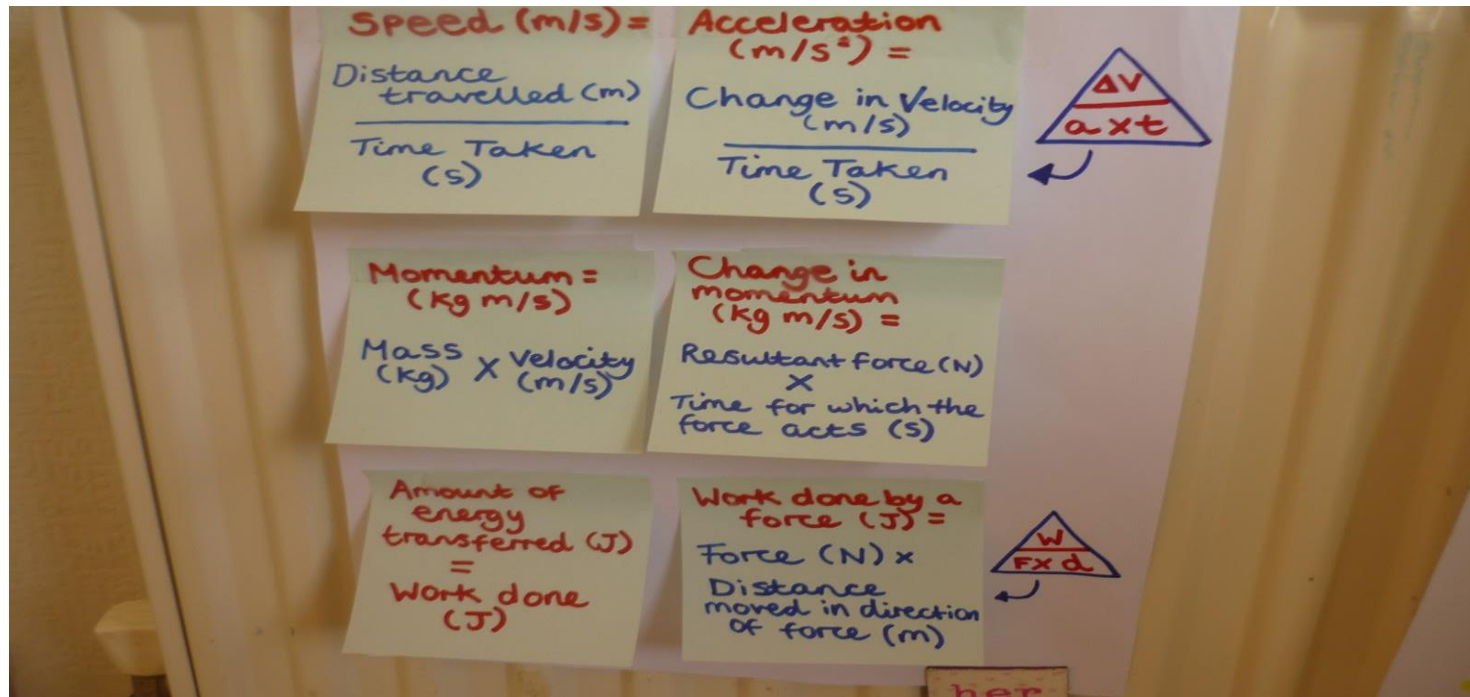 Speed (m/s) =
Distance
travelled (m)
Time Taken
(s)
Acceleration
(m/s²) =
Change in Velocity
(m/s)
Time Taken
(s)
ΔV
a x t
Momentum =
(kg m/s)
Mass x Velocity
(kg) (m/s)
Change in
momentum
(kg m/s) =
Resultant force (N)
x
Time for which the
force acts (s)
Amount of
energy
transferred (J)
=
Work done
(J)
Work done by a
force (J) =
Force (N) x
Distance
moved in direction
of force (m)
W
F x d
her